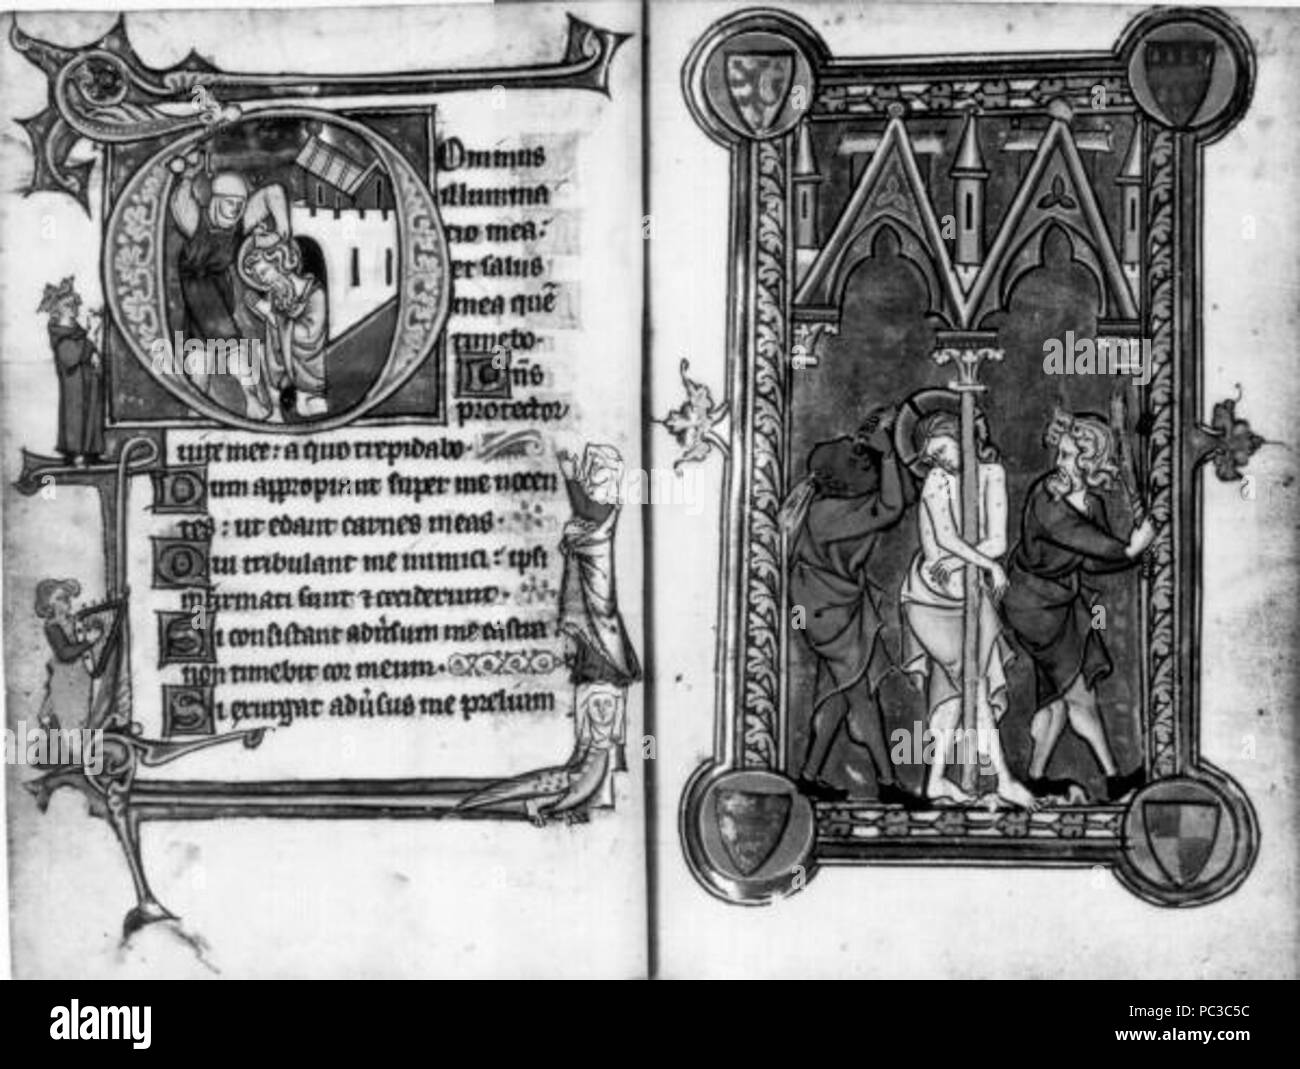 Ominus
illumina
tio mea:
et salus
mea quē
timebo.
Dn̄s
protector
uite mee: a quo trepidabo.
Dum appropiant super me nocen
tes: ut edant carnes meas.
Qui tribulant me inimici: ipsi
infirmati sunt ⁊ ceciderunt.
Si consistant adũsum me castra
non timebit cor meum.
Si exurgat adũsus me prelium
a alamy
alamy stock photo
PC3C5C
www.alamy.com